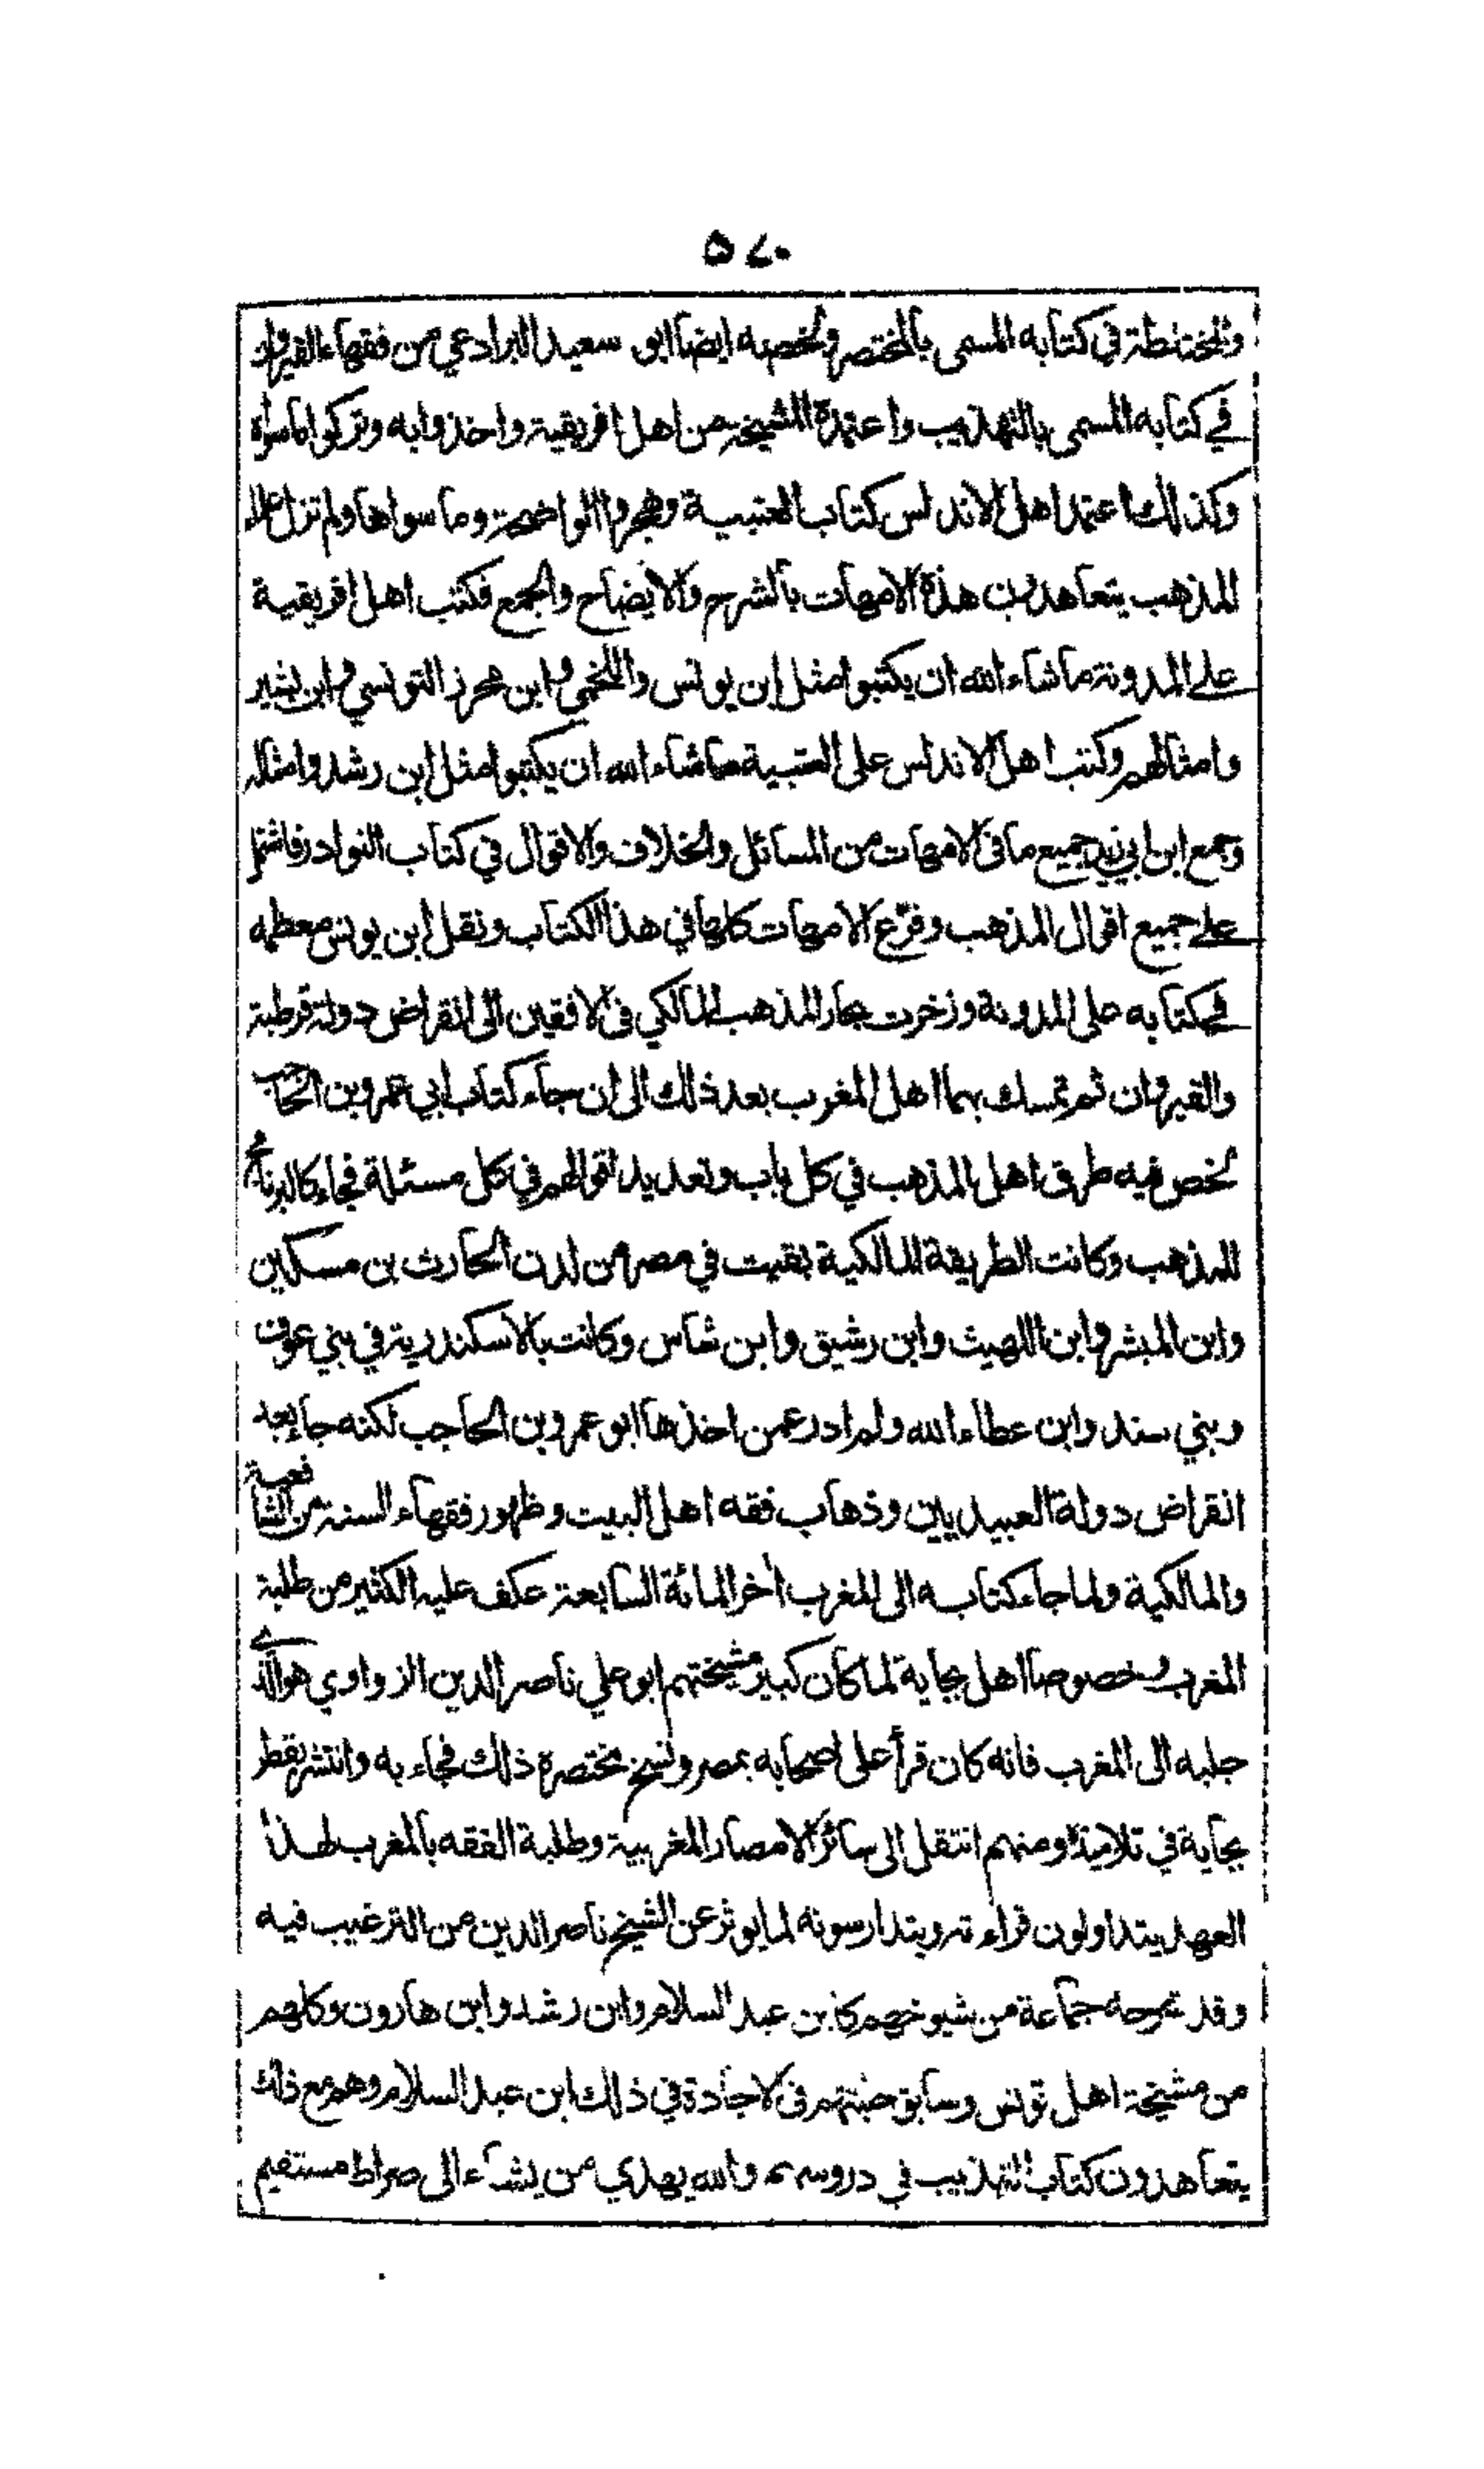 ٥٧٠
والمختلطة في كتابه المسمى بالمختصر ولخصه ايضا ابو سعيد البرادعي من فقهاء القيروان
في كتابه المسمى بالتهذيب واعتمدة المشيخة من اهل افريقية واخذوا به وتركوا ما سواة
وكذلك اعتمد اهل الاندلس كتاب العتبية وهجروا الواضحة وما سواها ولم تزل علماء
المذهب يتعاهدون هذة الامهات بالشرح والايضاح والجمع فكتب اهل افريقية
على المدونة ما شاء الله ان يكتبوا مثل ابن يونس واللخمي وابن محرز التونسي وابن بشير
وامثالهم وكتب اهل الاندلس على العتبية ما شاء الله ان يكتبوا مثل ابن رشد وامثاله
وجمع ابن ابي زيد جميع ما في الامهات من المسائل والخلاف والاقوال في كتاب النوادر فاشتمل
على جميع اقوال المذهب وفرّع الامهات كلها في هذا الكتاب ونقل ابن يونس معظمه
في كتابه على المدونة وزخرت بحار المذهب المالكي في الافقين الى انقراض دولة قرطبة
والقيروان ثم تمسك بهما اهل المغرب بعد ذلك الى ان جاء كتاب ابي عمرو بن الحاجب
لخص فيه طرق اهل المذهب في كل باب وتعديد اقوالهم في كل مسئلة فجاء كالبرنامج
للمذهب وكانت الطريقة المالكية بقيت في مصر من لدن الحارث بن مسكين
وابن المبشر وابن اللهيث وابن رشيق وابن شاس وكانت بالاسكندرية في بني عوف
وبني سند وابن عطاء الله ولم ادر عمن اخذها ابو عمرو بن الحاجب لكنه جا بعد
انقراض دولة العبيديين وذهاب فقه اهل البيت وظهور فقهاء السنة من الشافعية
والمالكية ولما جاء كتابه الى المغرب اخر المائة السابعة عكف عليه الكثير من طلبة
المغرب وخصوصا اهل بجاية لما كان كبير مشيختهم ابو علي ناصر الدين الزواوي هو الذي
جلبه الى المغرب فانه كان قرأ على اصحابه بمصر ونسخ مختصرة ذلك فجاء به وانتشر بقطر
بجاية في تلاميذة ومنهم انتقل الى سائر الامصار المغربية وطلبة الفقه بالمغرب لهذا
العهد يتداولون قراءته ويتدارسونه لما يوثر عن الشيخ ناصر الدين من الترغيب فيه
وقد شرحه جماعة من شيوخهم كابن عبد السلام وابن رشد وابن هارون وكلهم
من مشيخة اهل تونس وسابق حلبتهم في الاجادة في ذلك ابن عبد السلام وهم مع ذلك
يتعاهدون كتاب التهذيب في دروسهم والله يهدي من يشاء الى صراط مستقيم